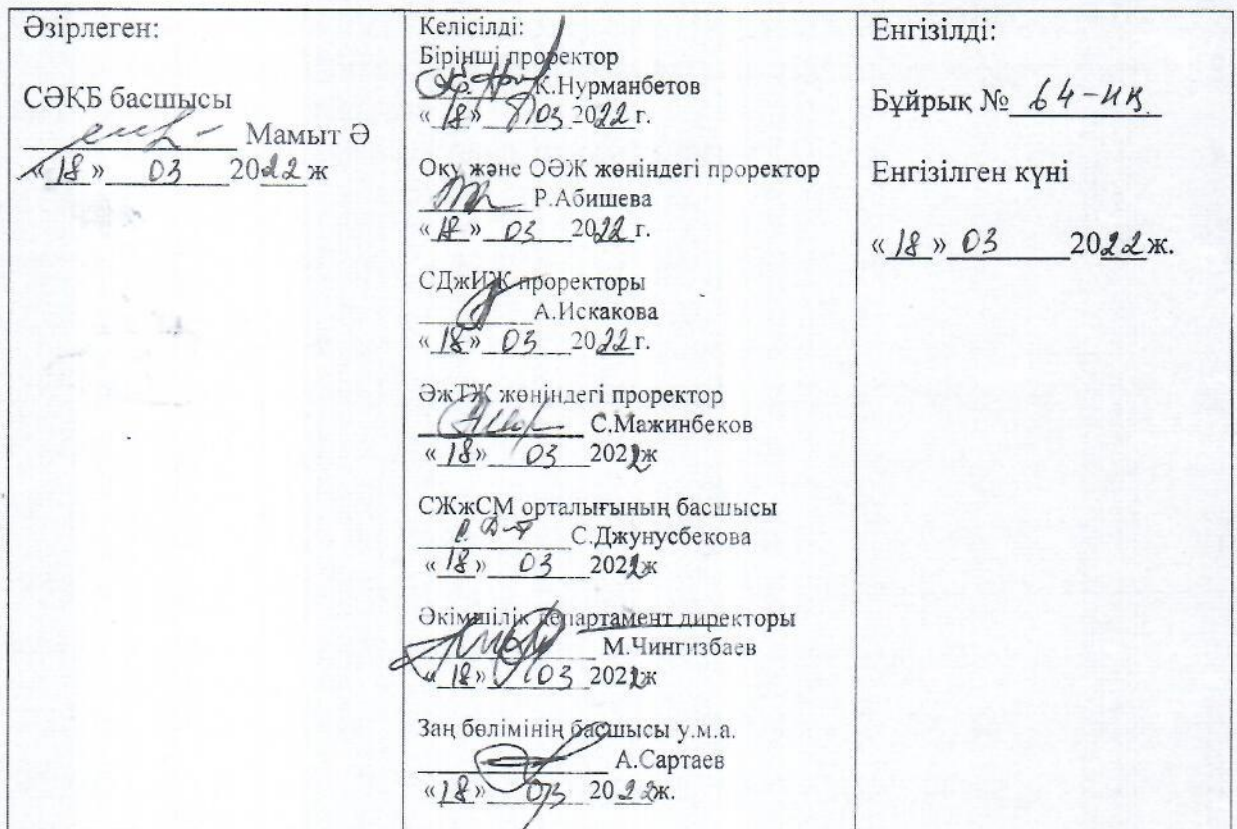 Әзірлеген:
СӘҚБ басшысы
Мамыт Ә
« 18 » 03 2022 ж
Келісілді:
Бірінші проректор
К.Нурманбетов
« 18 » 03 2022 г.
Оқу және ОӘЖ жөніндегі проректор
Р.Абишева
« 18 » 03 2022 г.
СДжИЖ проректоры
А.Искакова
« 18 » 03 2022 г.
ӘжТЖ жөніндегі проректор
С.Мажинбеков
« 18 » 03 2022ж
СЖжСМ орталығының басшысы
С.Джунусбекова
« 18 » 03 2022ж
Әкімшілік департамент директоры
М.Чингизбаев
« 18 » 03 2022ж
Заң бөлімінің басшысы у.м.а.
А.Сартаев
« 18 » 03 2022ж.
Енгізілді:
Бұйрық № 64-НҚ
Енгізілген күні
« 18 » 03 2022 ж.